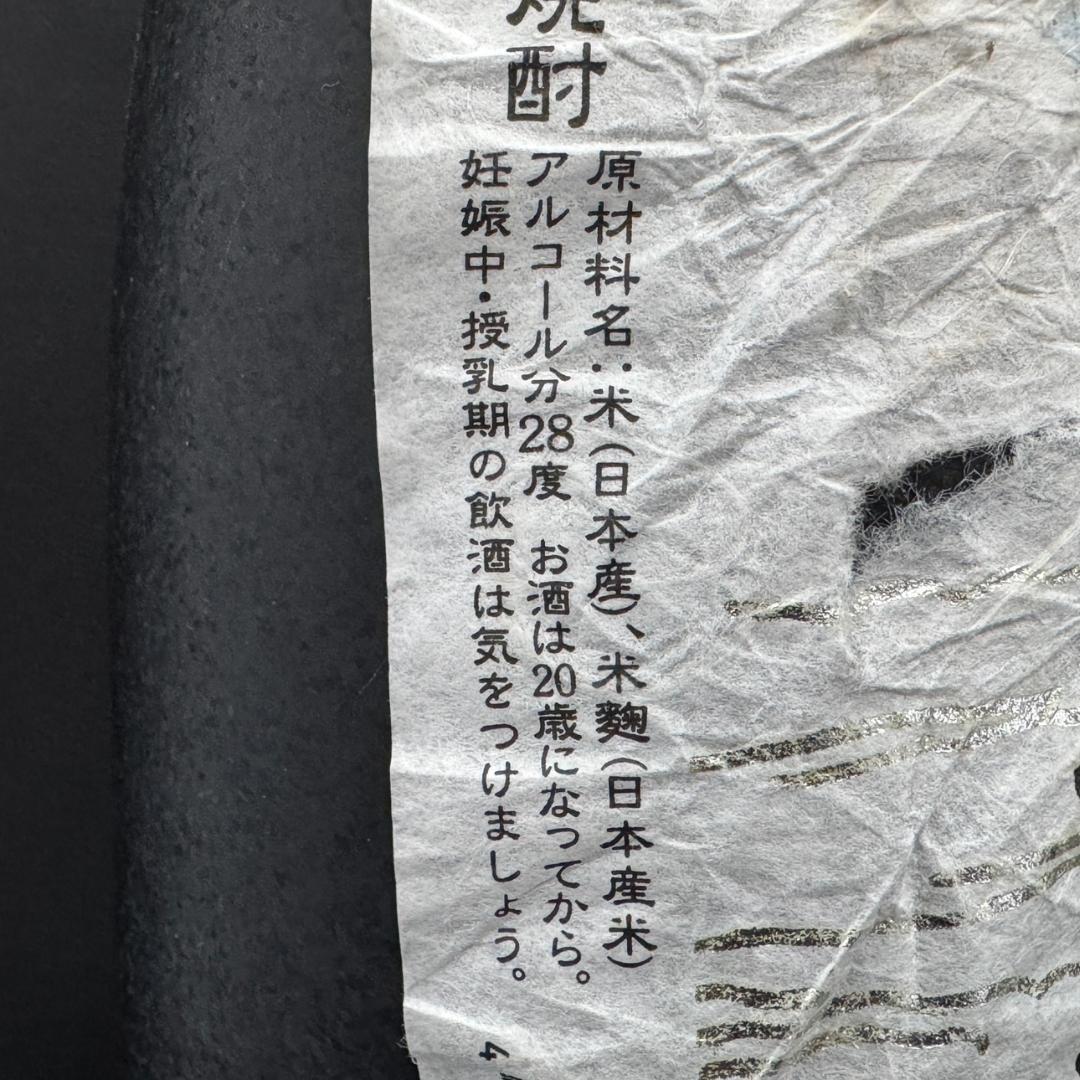 焼酎
原材料名：米（日本産）、米麹（日本産米）
アルコール分28度　お酒は20歳になってから。
妊娠中・授乳期の飲酒は気をつけましょう。